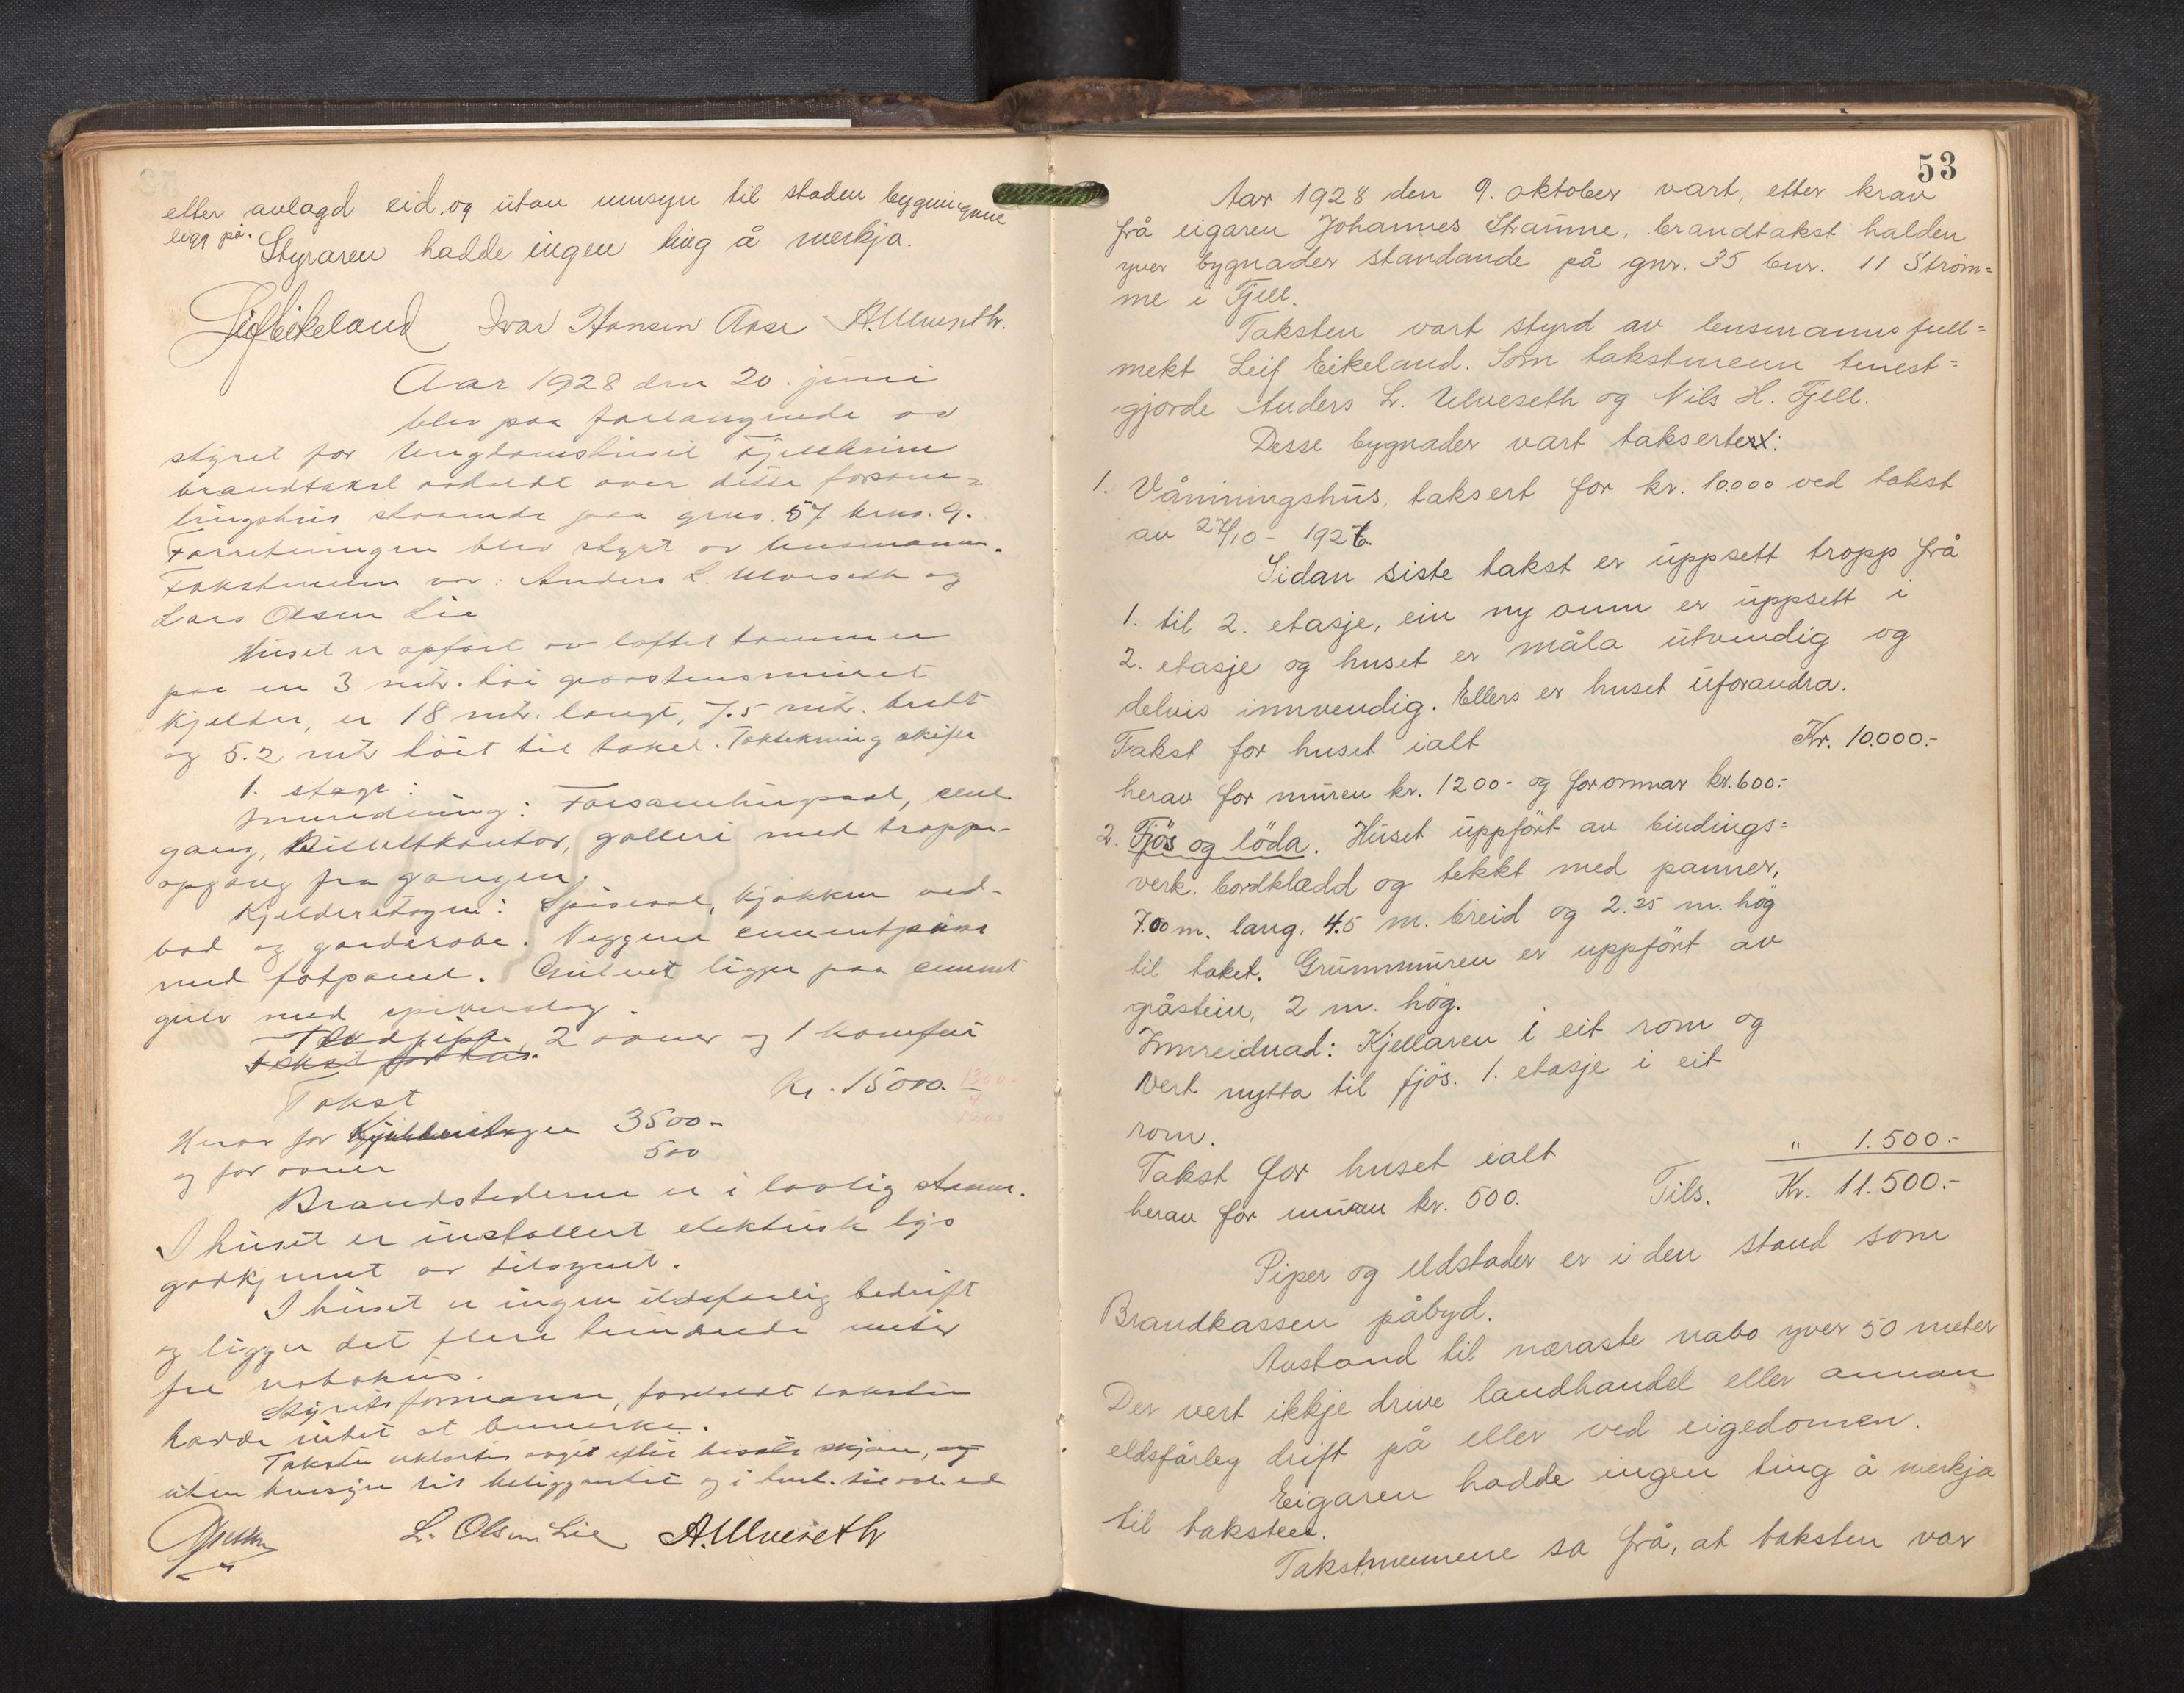 etter avlagd eid og utan umsyn til staden bygningane
ligg på.
Styraren hadde ingen ting å merkja.
Leif Eikeland Ivar Hansen Aase A. Ulveseth.
Aar 1928 den 20. juni
blev paa forlangende av
styret for Ungdomshuset Fjellheim
brandtakst avholdt over dette forsam=
lingshus staaende paa grno. 57 brno. 9.
Forretningen blev styrt av lensmann.
Takstmenn var: Anders L. Ulveseth og
Lars Olsen Lie
Huset er opført av laftet tømmer
paa en 3 mtr. høi graastensmuret
kjelder, er 18 mtr. langt, 7.5 mtr. bredt
og 5.2 mtr høit til taket. Taktekning skifer
1. etage:
Innredning: Forsamlingssal,
gang, Billettkontor, galleri med trappe-
opgang fra gangen.
Kjelderetagen: Spisesal, kjøkken ved-
bod og garderobe. Veggene cementpuss
med fotpanel. Gulvet ligger paa cement
gulv med
2 ovner og 1 komfur
Takst Kr. 15000.-
Herav for Kjelderetagen 3500-
og for ovner 500
Brandstederne er i lovlig stann.
I huset er installert elektrisk lys
godkjennt av tilsynet.
I huset er ingen ildsfarlig bedrift
og ligger det flere hundrede meter
fra nabohus.
Styrets formann, foreholdt taksten
havde intet at bemerke.
Taksten avgit efter beste skjøn, og
uten hensyn til beliggenhet og i henh. til avl. ed
L. Olsen Lie A. Ulveseth
53
Aar 1928 den 9. oktober vart, etter krav
frå eigaren Johannes Straume, brandtakst halden
yver bygnader standande på gnr. 35 bnr. 11 Ström=
me i Fjell.
Taksten vart styrd av lensmannsfull=
mekt Leif Eikeland. Som takstmenn tenest=
gjorde Anders L. Ulveseth og Nils H. Fjell.
Desse bygnader vart taksert:
1. Våningshus, taksert for kr. 10.000 ved takst
av 27/10 - 1926.
Sidan siste takst er uppsett tropp frå
1. til 2. etasje, ein ny omn er uppsett i
2. etasje og huset er måla utvendig og
delvis innvendig. Ellers er huset uforandra.
Takst for huset ialt Kr. 10.000.-
herav for muren kr. 1200- og for omnar kr. 600.-
2. Fjös og löda. Huset uppfört av bindings=
verk. bordklædd og tekkt med panner,
7.00 m. lang. 4.5 m. breid og 2.25 m. hög
til taket. Grunnmuren er uppfört av
gråstein, 2 m. hög.
Innreidnad: Kjellaren i eit rom og
vert nytta til fjös. 1. etasje i eit
rom.
Takst for huset ialt " 1.500.-
herav for muren kr. 500. Tils. Kr. 11.500.-
Piper og eldstader er i den stand som
Brandkassen påbyd.
Avstand til næraste nabo yver 50 meter
Der vert ikkje drive landhandel eller annan
eldsfårleg drift på eller ved eigedomen.
Eigaren hadde ingen ting å merkja
til taksten.
Takstmennene sa frå, at taksten var